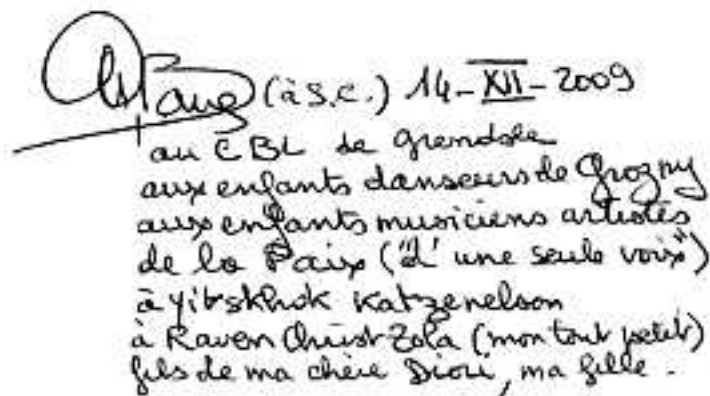 (à S.C.) 14-XII-2009
au CBL de Grenoble
aux enfants danseurs de Grozny
aux enfants musiciens artistes
de la Paix ("d'une seule voix")
à Yitskhok Katzenelson
à Raven Christ Zola (mon tout petit)
fils de ma chère Diori, ma fille.